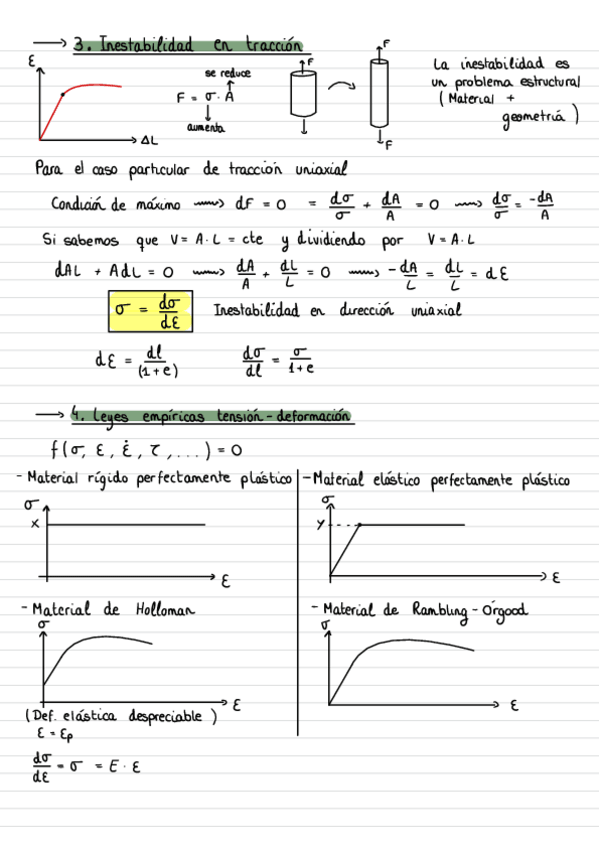 → 3. Inestabilidad en tracción
ε
ΔL
se reduce
F = σ · A
aumenta
F
F
F
F
La inestabilidad es
un problema estructural
( Material +
geometriá )
Para el caso particular de tracción uniaxial
Condición de máximo ⟿ dF = 0 = dσ/σ + dA/A = 0 ⟿ dσ/σ = -dA/A
Si sabemos que V = A · L = cte y dividiendo por V = A · L
dAL + AdL = 0 ⟿ dA/A + dL/L = 0 ⟿ - dA/L = dL/L = dε
σ = dσ/dε Inestabilidad en dirección uniaxial
dε = dl/(1+e) dσ/dl = σ/1+e
→ 4. Leyes empíricas tensión - deformación
f(σ, ε, ε̇, τ, ...) = 0
- Material rígido perfectamente plástico
σ
X
ε
- Material elástico perfectamente plástico
σ
Y
ε
- Material de Holloman
σ
ε
(Def. elástica despreciable )
ε = εp
dσ/dε = σ = E · ε
- Material de Rambling - Orgood
σ
ε